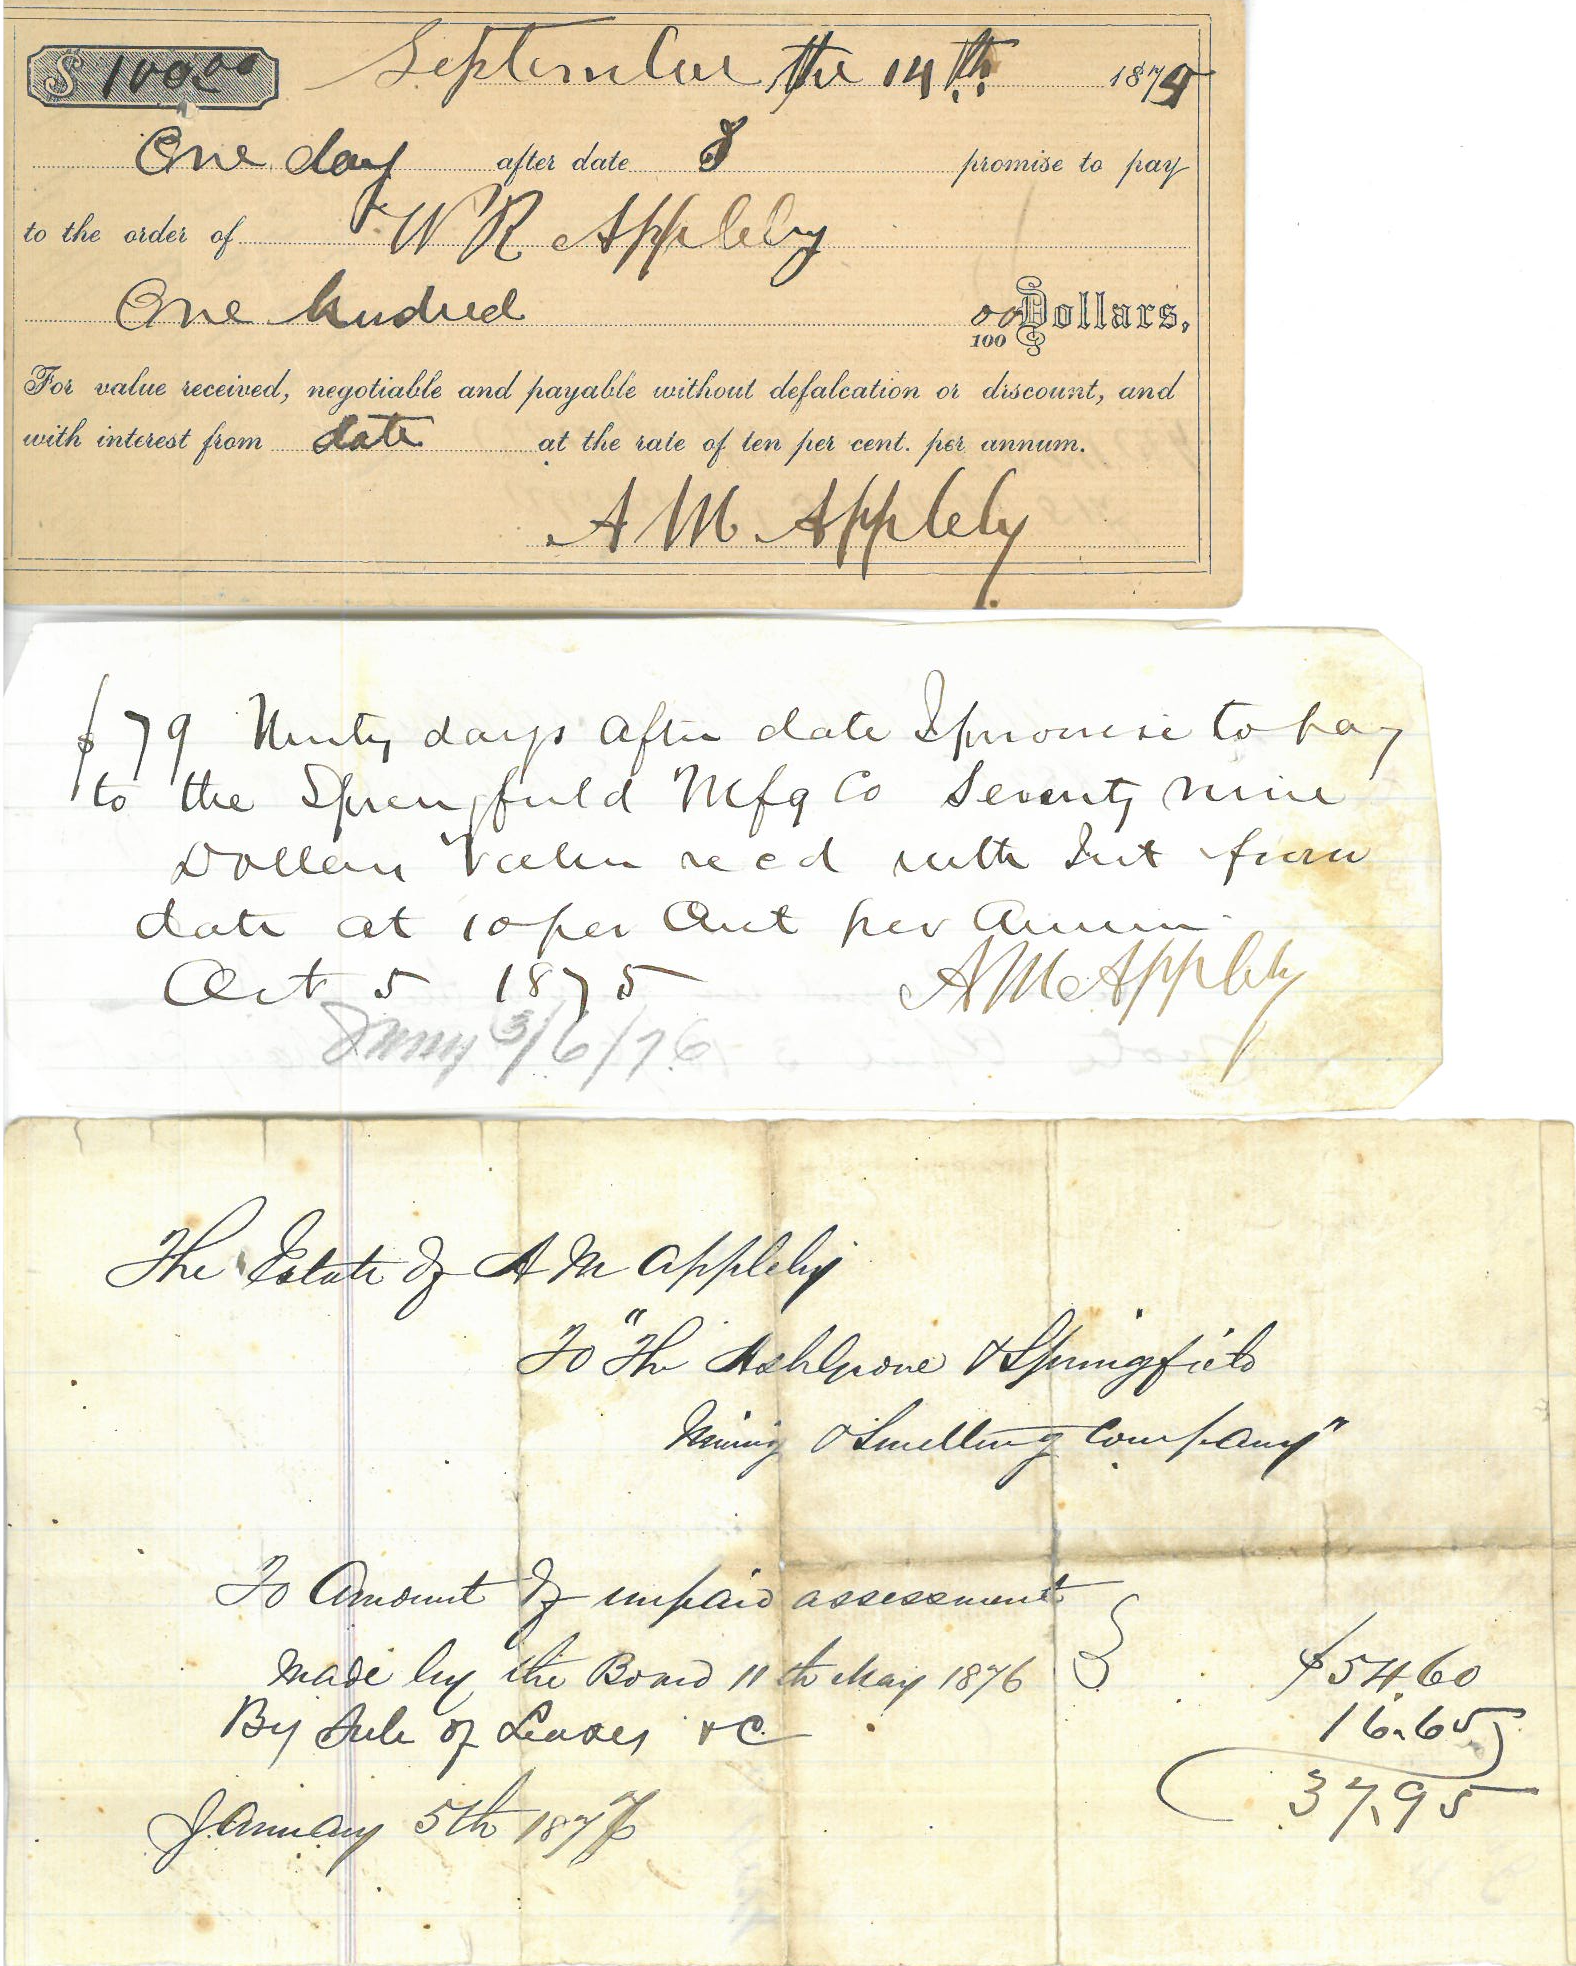 $ 100.00 September the 14th 1875
One day after date I promise to pay
to the order of W R Appleby
One hundred 00/100 Dollars,
For value received, negotiable and payable without defalcation or discount, and
with interest from date at the rate of ten per cent. per annum.
A M Appleby
$79 Ninty days after date I promise to pay
to the Springfield Mfg Co Seventy nine
Dollars Value recd with Int from
date at 10 per Cent per Annum
Oct 5 1875 A M Appleby
3/6/76
The Estate of A M Appleby
To "The Ashgrove & Springfield
Mining & Smelting Company"
To Amount of unpaid assessment
made by the Board 11th May 1876 $54.60
By Sale of Leases &C 16.65
37.95
January 5th 1877